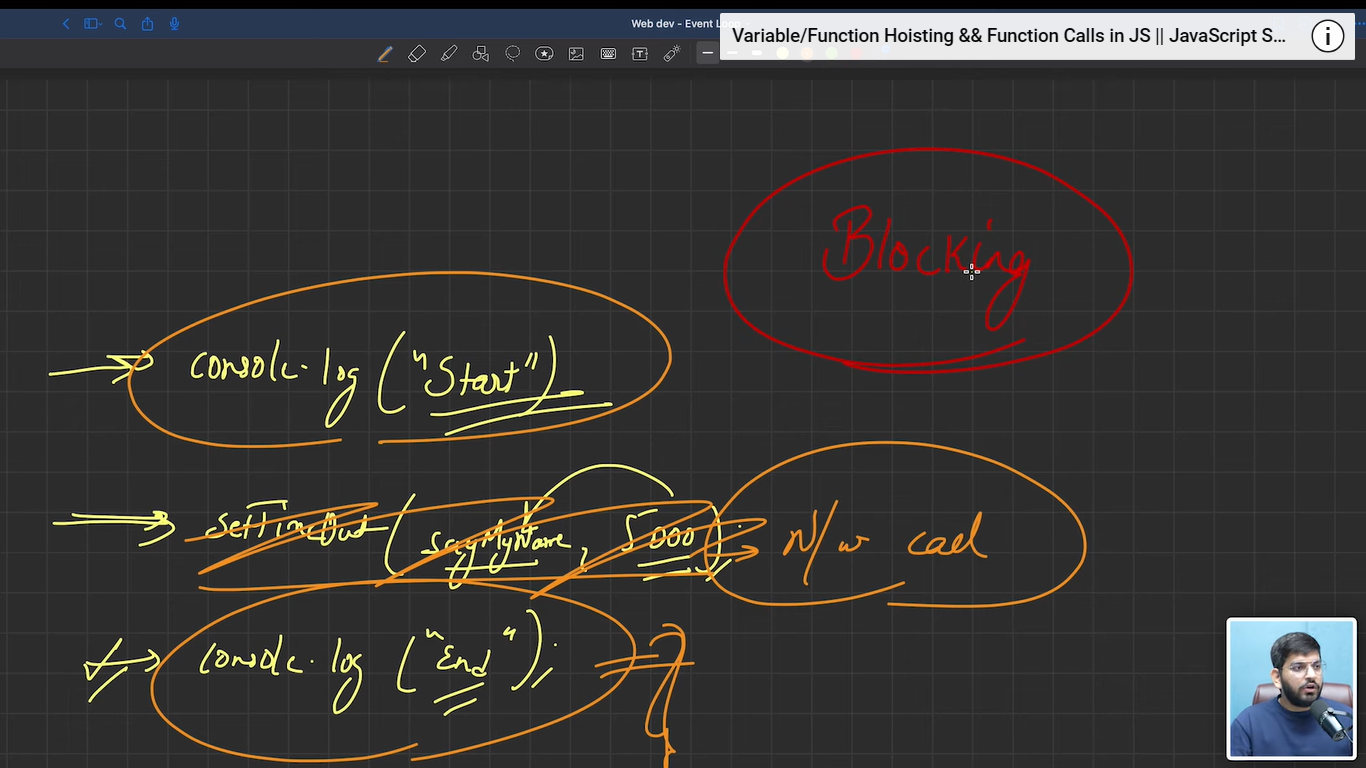 Web dev - Event Lo
Variable/Function Hoisting && Function Calls in JS || JavaScript S...
Blocking
console.log ("Start")
setTimeOut (sayMyName, 5000);
N/w call
console.log ("End");